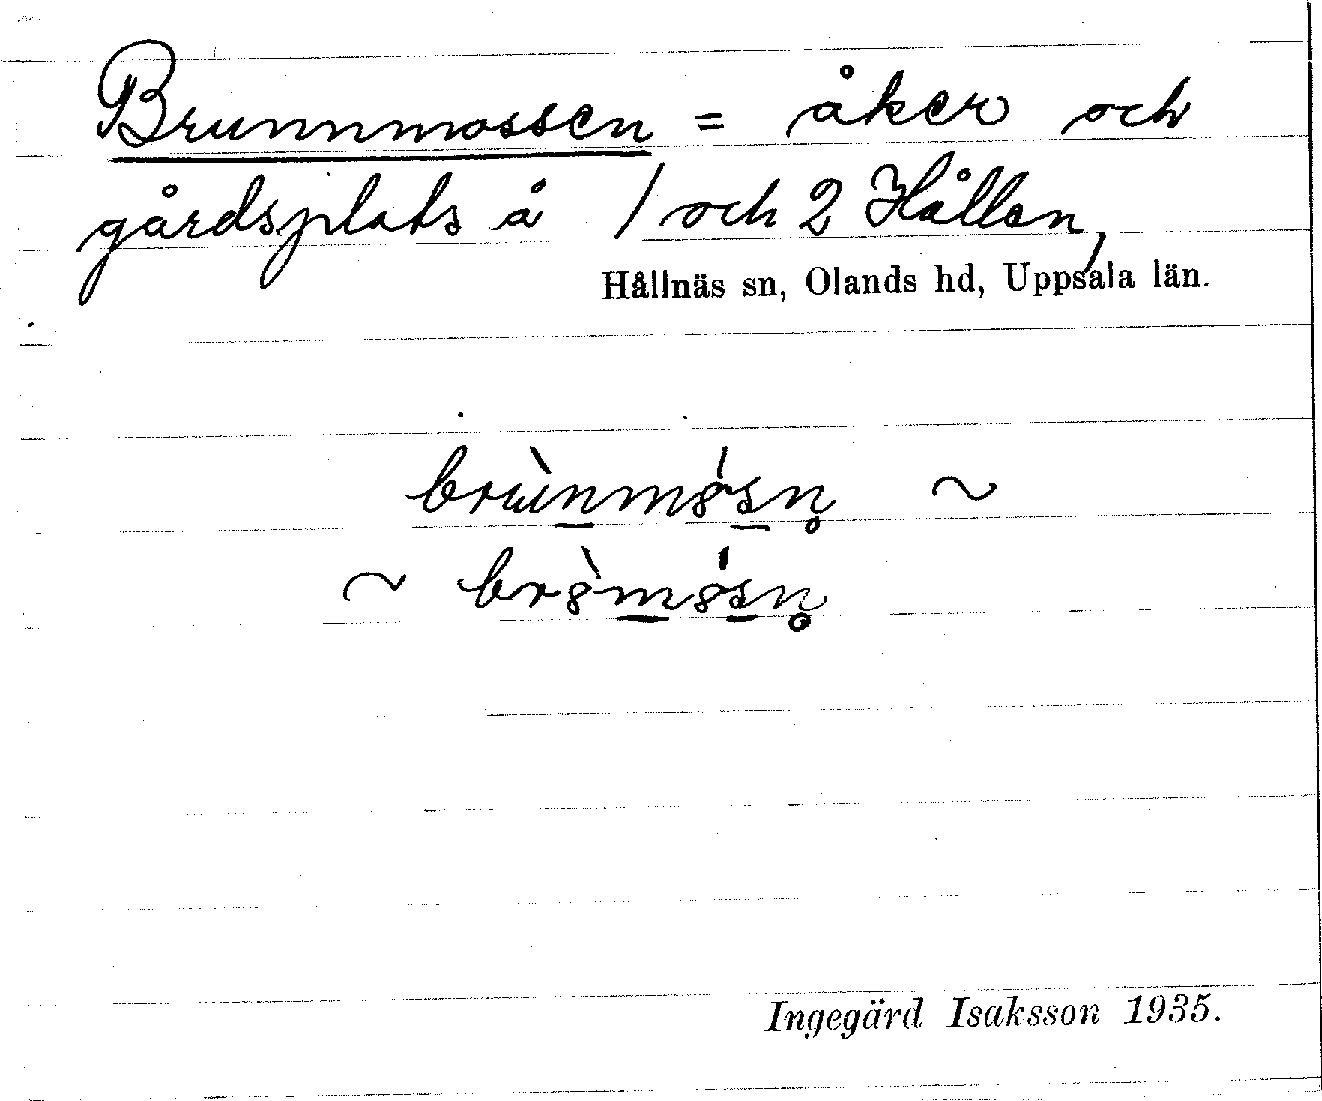 Brunnmossen = åker och
gårdsplats å 1 och 2 Hållen,
Hållnäs sn, Olands hd, Uppsala län.
Ingegärd Isaksson 1935.